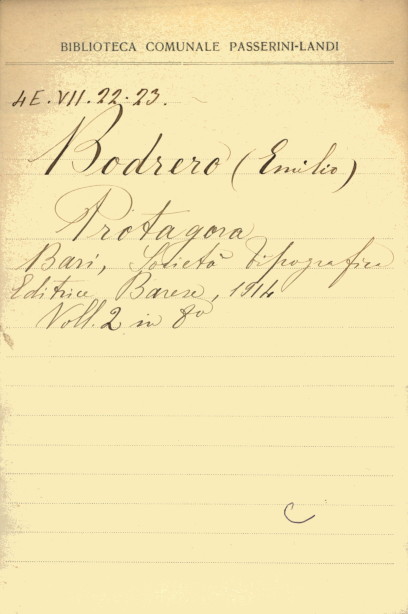 BIBLIOTECA COMUNALE PASSERINI-LANDI
4E.VII.22.23.
Bodrero (Emilio)
Protagora
Bari, Società Tipografica
Editrice Barese, 1914
Voll. 2 in 8º
C